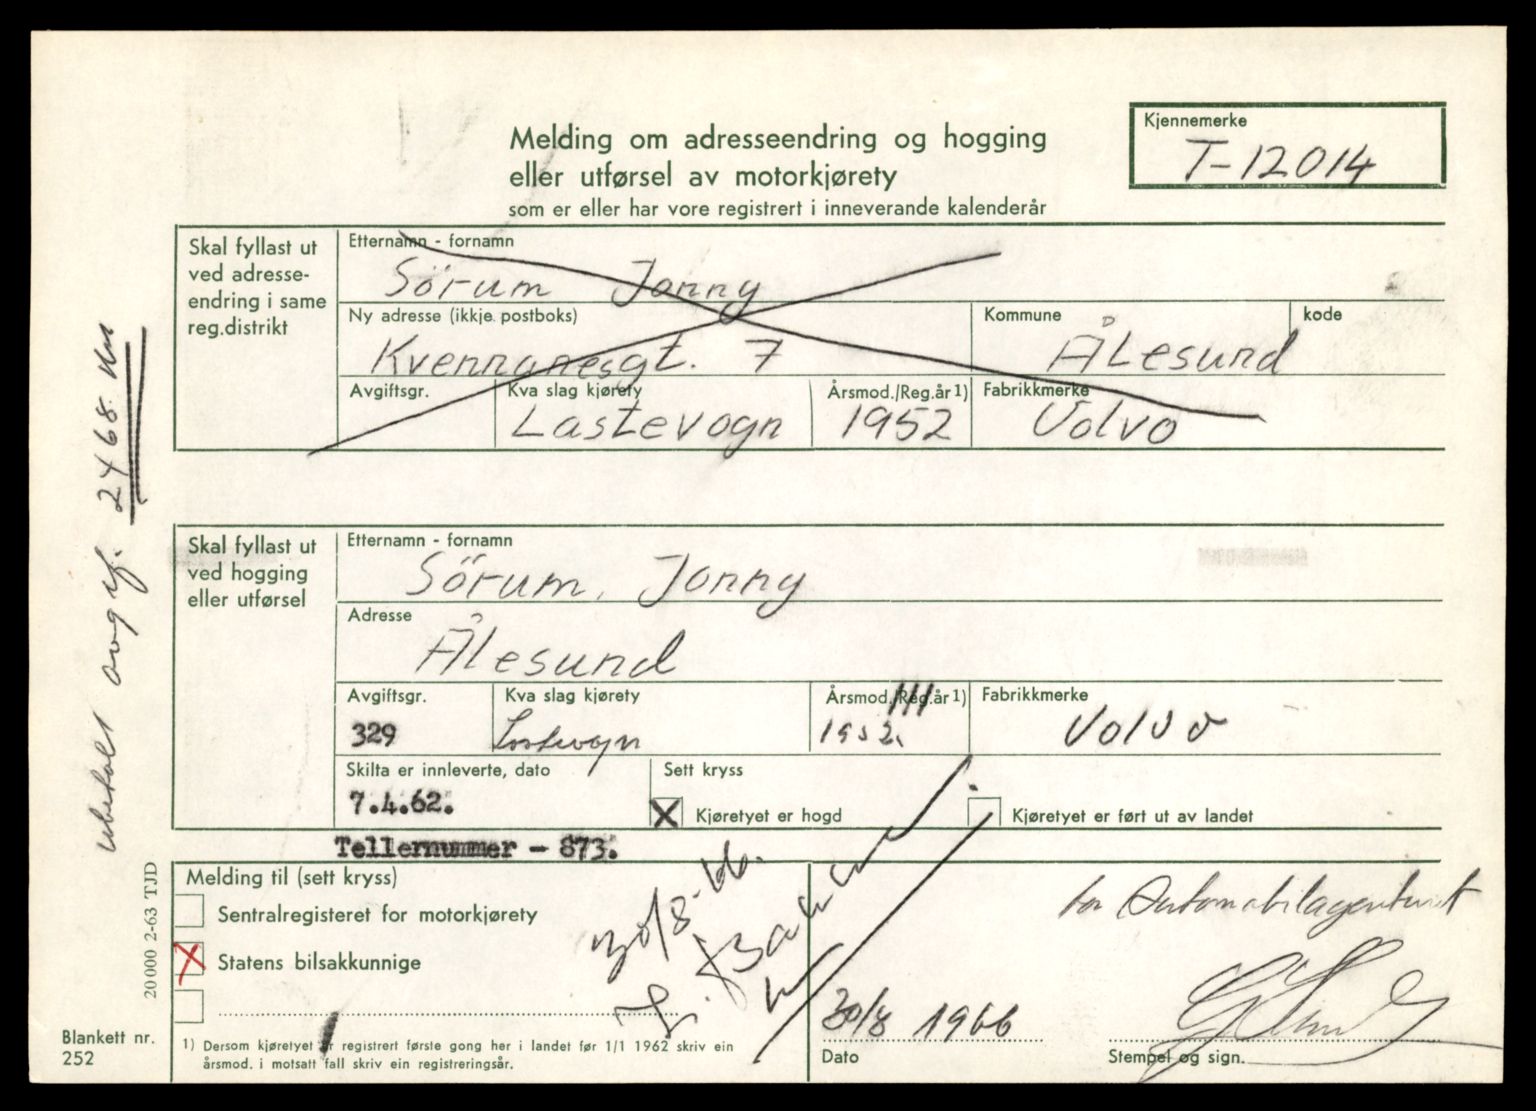 Melding om adresseendring og hogging
eller utførsel av motorkjørety
som er eller har vore registrert i inneverande kalenderår
Kjennemerke
T-12014
Skal fyllast ut
ved adresse-
endring i same
reg.distrikt
Etternamn - fornamn
Sörum Jonny
Ny adresse (ikkje postboks)
Kvennanesgt. 7
Kommune
Ålesund
kode
Avgiftsgr.
Kva slag kjørety
Lastevogn
Årsmod./Reg.år 1)
1952
Fabrikkmerke
Volvo
Skal fyllast ut
ved hogging
eller utførsel
Etternamn - fornamn
Sörum, Jonny
Adresse
Ålesund
Avgiftsgr.
329
Kva slag kjørety
Lastevogn
Årsmod./Reg.år 1)
1952.
Fabrikkmerke
Volvo
Skilta er innleverte, dato
7.4.62.
Sett kryss
X Kjøretyet er hogd
Kjøretyet er ført ut av landet
Tellernummer - 873.
Melding til (sett kryss)
Sentralregisteret for motorkjørety
X Statens bilsakkunnige
30/8-66.
for Automobilagenturet
30/8 1966
Dato
Stempel og sign.
1) Dersom kjøretyet er registrert første gong her i landet før 1/1 1962 skriv ein
årsmod. i motsatt fall skriv ein registreringsår.
Blankett nr.
252
20000 2-63 TJD
ubetalt avgif. 2468 kr